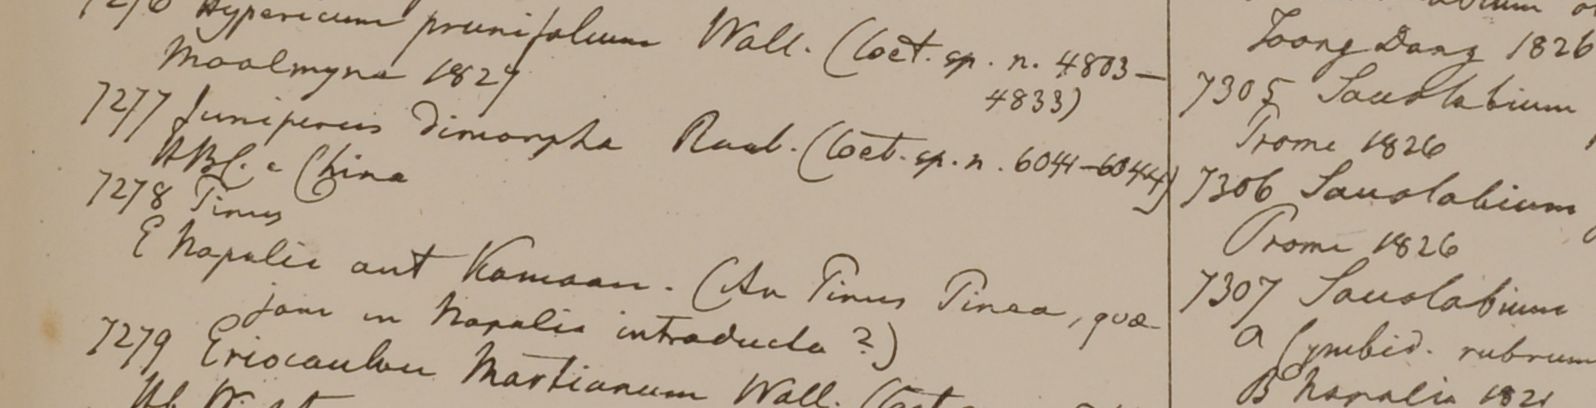 7276 Hypericum prunifolium Wall. (Cat. sp. n. 4803 –
4833)
Moalmyne 1827
7277 Juniperus dimorpha Roxb. (Cat. sp. n. 6041–6044)
HBC. e China
7278 Pinus
E Napalia aut Kamaon. (An Pinus Pinea, quæ
jam in Napalia introducta?)
7279 Eriocaulon Martianum Wall.
Toong Dong 1826
7305 Saccolabium
Prome 1826
7306 Saccolabium
Prome 1826
7307 Saccolabium
a Cymbid. rubrum
B Napalia 1821